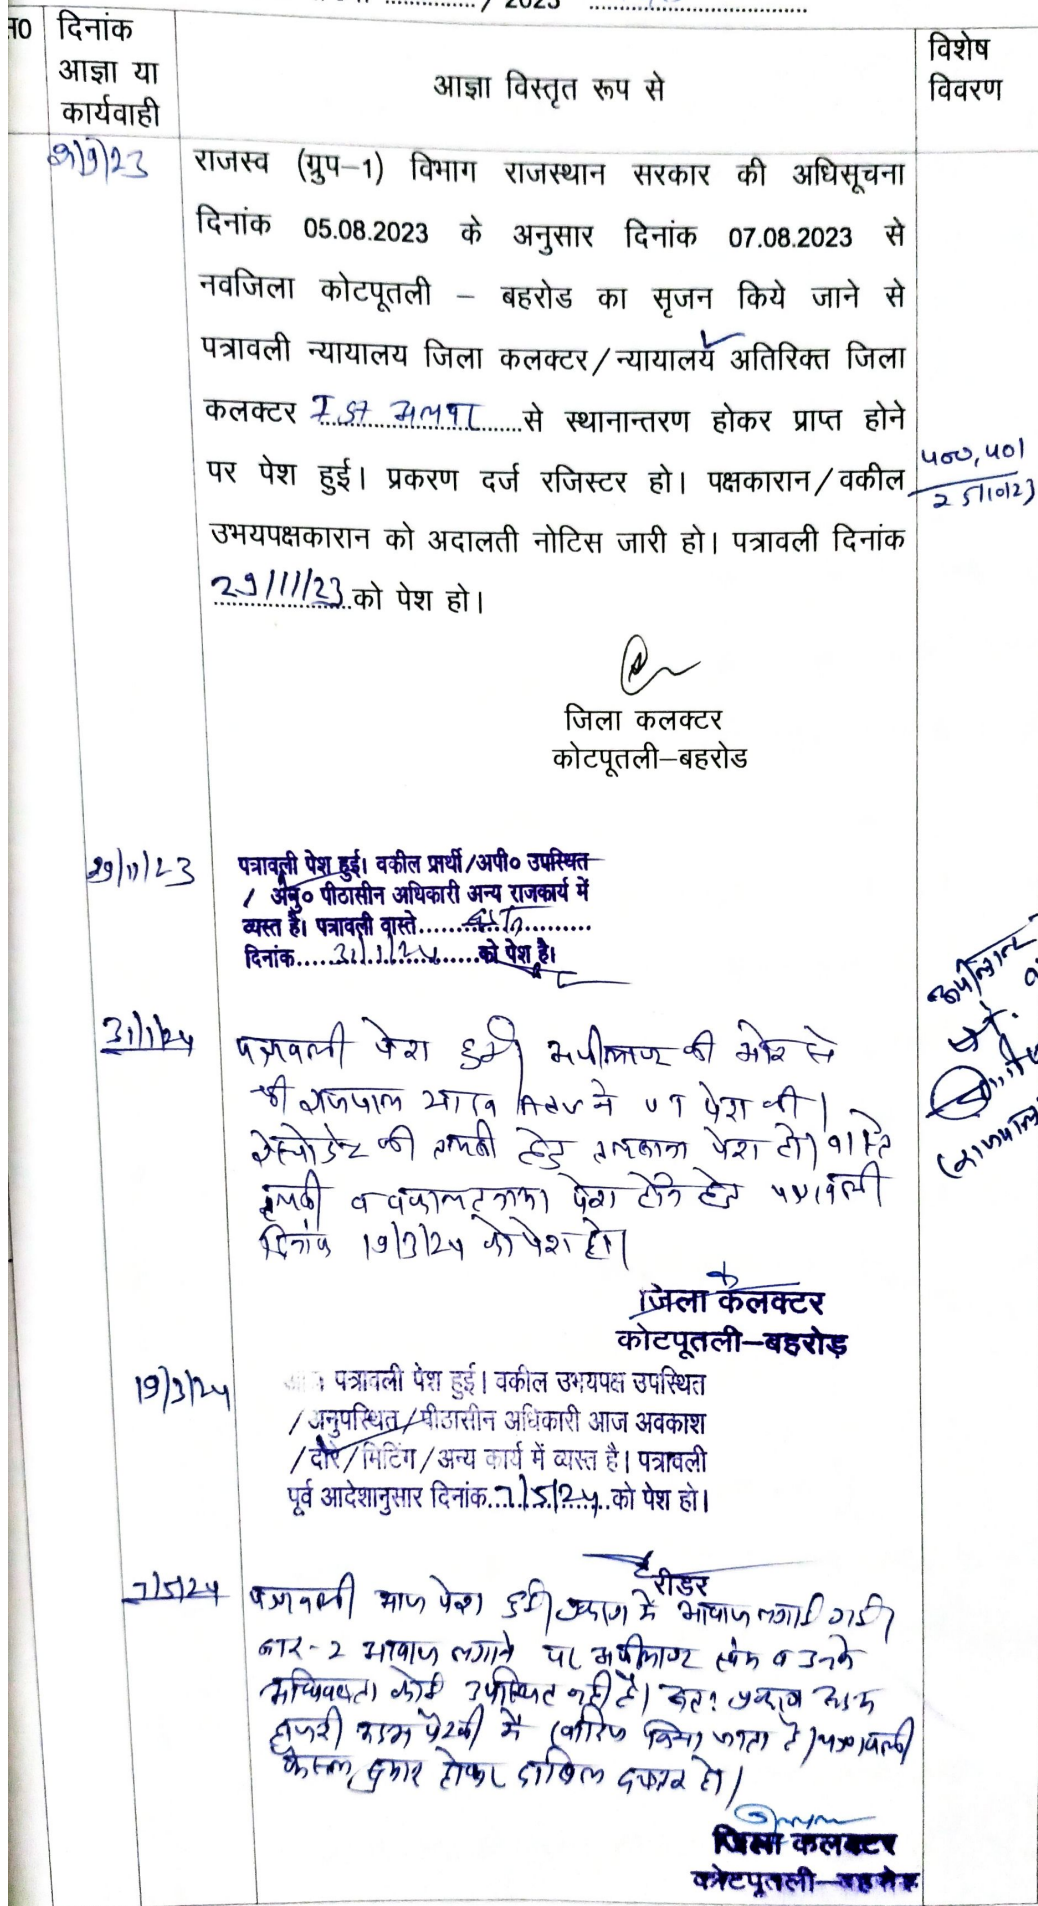 / 2023
दिनांक
आज्ञा या
कार्यवाही
आज्ञा विस्तृत रूप से
विशेष
विवरण
राजस्व (ग्रुप–1) विभाग राजस्थान सरकार की अधिसूचना
दिनांक 05.08.2023 के अनुसार दिनांक 07.08.2023 से
नवजिला कोटपूतली – बहरोड का सृजन किये जाने से
पत्रावली न्यायालय जिला कलक्टर/न्यायालय अतिरिक्त जिला
कलक्टर से स्थानान्तरण होकर प्राप्त होने
पर पेश हुई। प्रकरण दर्ज रजिस्टर हो। पक्षकारान/वकील
उभयपक्षकारान को अदालती नोटिस जारी हो। पत्रावली दिनांक
29/11/23 को पेश हो।
25/10/23
जिला कलक्टर
कोटपूतली–बहरोड
29/11/23
पत्रावली पेश हुई। वकील प्रार्थी/अपी० उपस्थित
/ अनु० पीठासीन अधिकारी अन्य राजकार्य में
व्यस्त है। पत्रावली वास्ते
दिनांक 31/1/24 को पेश है।
31/1/24
पत्रावली पेश हुई। अपीलान्ट की ओर से
श्री राजपाल यादव Adv ने UT पेश की।
रेस्पोडेन्ट की तलबी हेतु तलबाना पेश हो। वास्ते
तलबी व वकालतनामा पेश होने हेतु पत्रावली
दिनांक 19/3/24 को पेश हो।
जिला कलक्टर
कोटपूतली–बहरोड़
19/3/24
पत्रावली पेश हुई। वकील उभयपक्ष उपस्थित
/अनुपस्थित/पीठासीन अधिकारी आज अवकाश
/दौरे/मिटिंग/अन्य कार्य में व्यस्त है। पत्रावली
पूर्व आदेशानुसार दिनांक 7/5/24 को पेश हो।
रीडर
7/5/24
पत्रावली आज पेश हुई। प्रकरण में आवाज लगाई गई।
बार-2 आवाज लगाने पर अपीलान्ट स्वंय व उनके
अधिवक्ता कोई उपस्थित नहीं है। अतः प्रकरण अदम
हाजरी अदम पैरवी में खारिज किया जाता है। पत्रावली
फैसल शुमार होकर दाखिल दफ्तर हो।
जिला कलक्टर
कोटपूतली–बहरोड़